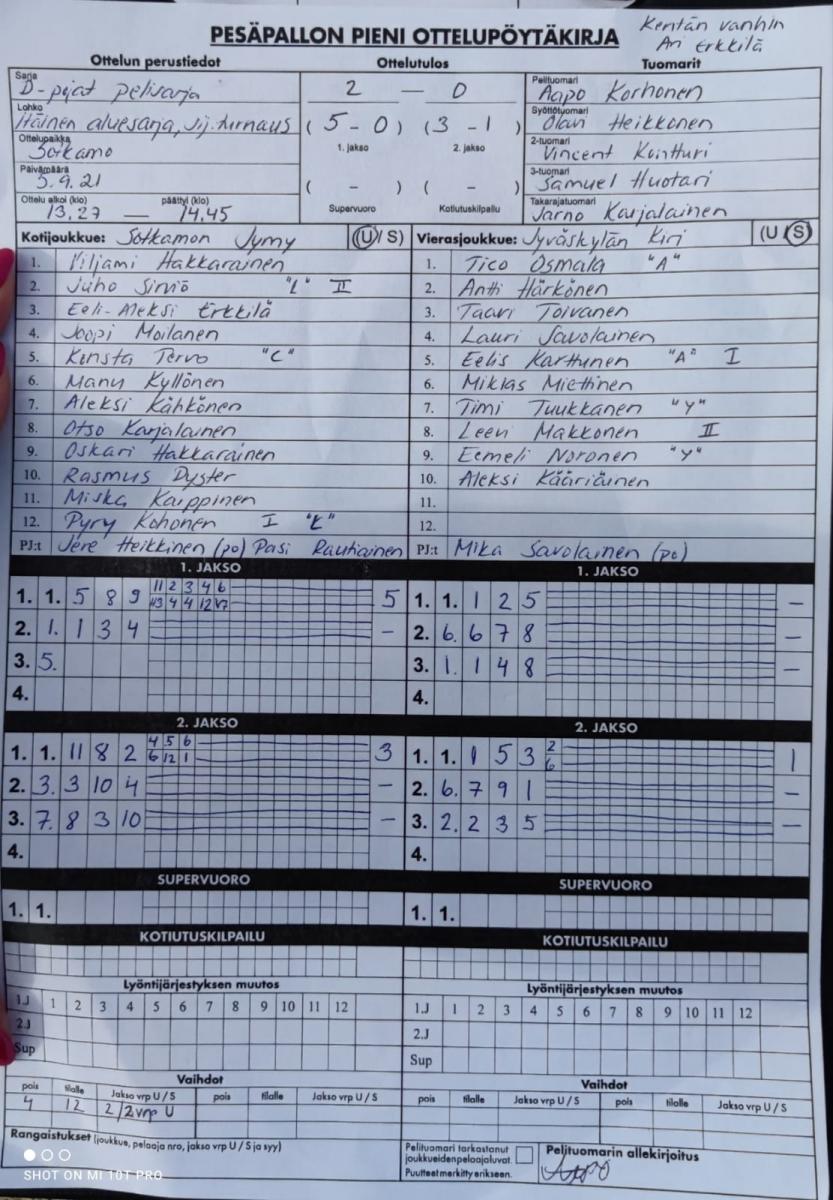 PESÄPALLON PIENI OTTELUPÖYTÄKIRJA
Kentän vanhin
Ari Erkkilä
Ottelun perustiedot
Ottelutulos
Tuomarit
Sarja
D-pojat pelisarja
Lohko
Itäinen aluesarja, sij. turnaus
Ottelupaikka
Sotkamo
Päivämäärä
5.9.21
Ottelu alkoi (klo) päättyi (klo)
13.27 — 14.45
2 — 0
( 5 - 0 ) ( 3 - 1 )
1. jakso 2. jakso
( - ) ( - )
Supervuoro Kotiutuskilpailu
Pelituomari
Aapo Korhonen
Syöttötuomari
Olavi Heikkonen
2-tuomari
Vincent Kointturi
3-tuomari
Samuel Huotari
Takarajatuomari
Jarno Karjalainen
Kotijoukkue: Sotkamon Jymy (U/S)
1. Viljami Hakkarainen
2. Juho Simiö "L" II
3. Eeli-Aleksi Erkkilä
4. Joopi Moilanen
5. Konsta Tervo "C"
6. Manu Kyllönen
7. Aleksi Kähkönen
8. Otso Karjalainen
9. Oskari Hakkarainen
10. Rasmus Dyster
11. Miska Karppinen
12. Pyry Kohonen I "L"
PJ:t Jere Heikkinen (po) Pasi Rautiainen
Vierasjoukkue: Jyväskylän Kiri (U/S)
1. Tico Osmala "A"
2. Antti Härkönen
3. Taavi Toivanen
4. Lauri Savolainen
5. Eelis Karttunen "A" I
6. Miklas Miettinen
7. Timi Tuukkanen "Y"
8. Leevi Makkonen II
9. Eemeli Noronen "Y"
10. Aleksi Kääriäinen
11.
12.
PJ:t Mika Savolainen (po)
1. JAKSO
11 2 3 4 6
1. 1. 5 8 9 5
2. 1. 1 3 4 —
3. 5.
4.
1. JAKSO
1. 1. 1 2 5 —
2. 6. 6 7 8 —
3. 1. 1 4 8 —
4.
2. JAKSO
4 5 6
1. 1. 11 8 2 6 12 1 3
2. 3. 3 10 4 —
3. 7. 8 3 10 —
4.
2. JAKSO
2
1. 1. 1 5 3 6 1
2. 6. 7 9 1 —
3. 2. 2 3 5 —
4.
SUPERVUORO
1. 1.
SUPERVUORO
1. 1.
KOTIUTUSKILPAILU
KOTIUTUSKILPAILU
Lyöntijärjestyksen muutos
1.J 1 2 3 4 5 6 7 8 9 10 11 12
2.J
Sup
Lyöntijärjestyksen muutos
1.J 1 2 3 4 5 6 7 8 9 10 11 12
2.J
Sup
Vaihdot
pois tilalle Jakso vrp U / S pois tilalle Jakso vrp U / S
4 12 2/2vrp U
Vaihdot
pois tilalle Jakso vrp U / S pois tilalle Jakso vrp U / S
Rangaistukset (joukkue, pelaaja nro, jakso vrp U / S ja syy)
Pelituomari tarkastanut
joukkueiden pelaajaluvat.
Puutteet merkitty erikseen.
Pelituomarin allekirjoitus
Aapo
SHOT ON MI 10T PRO